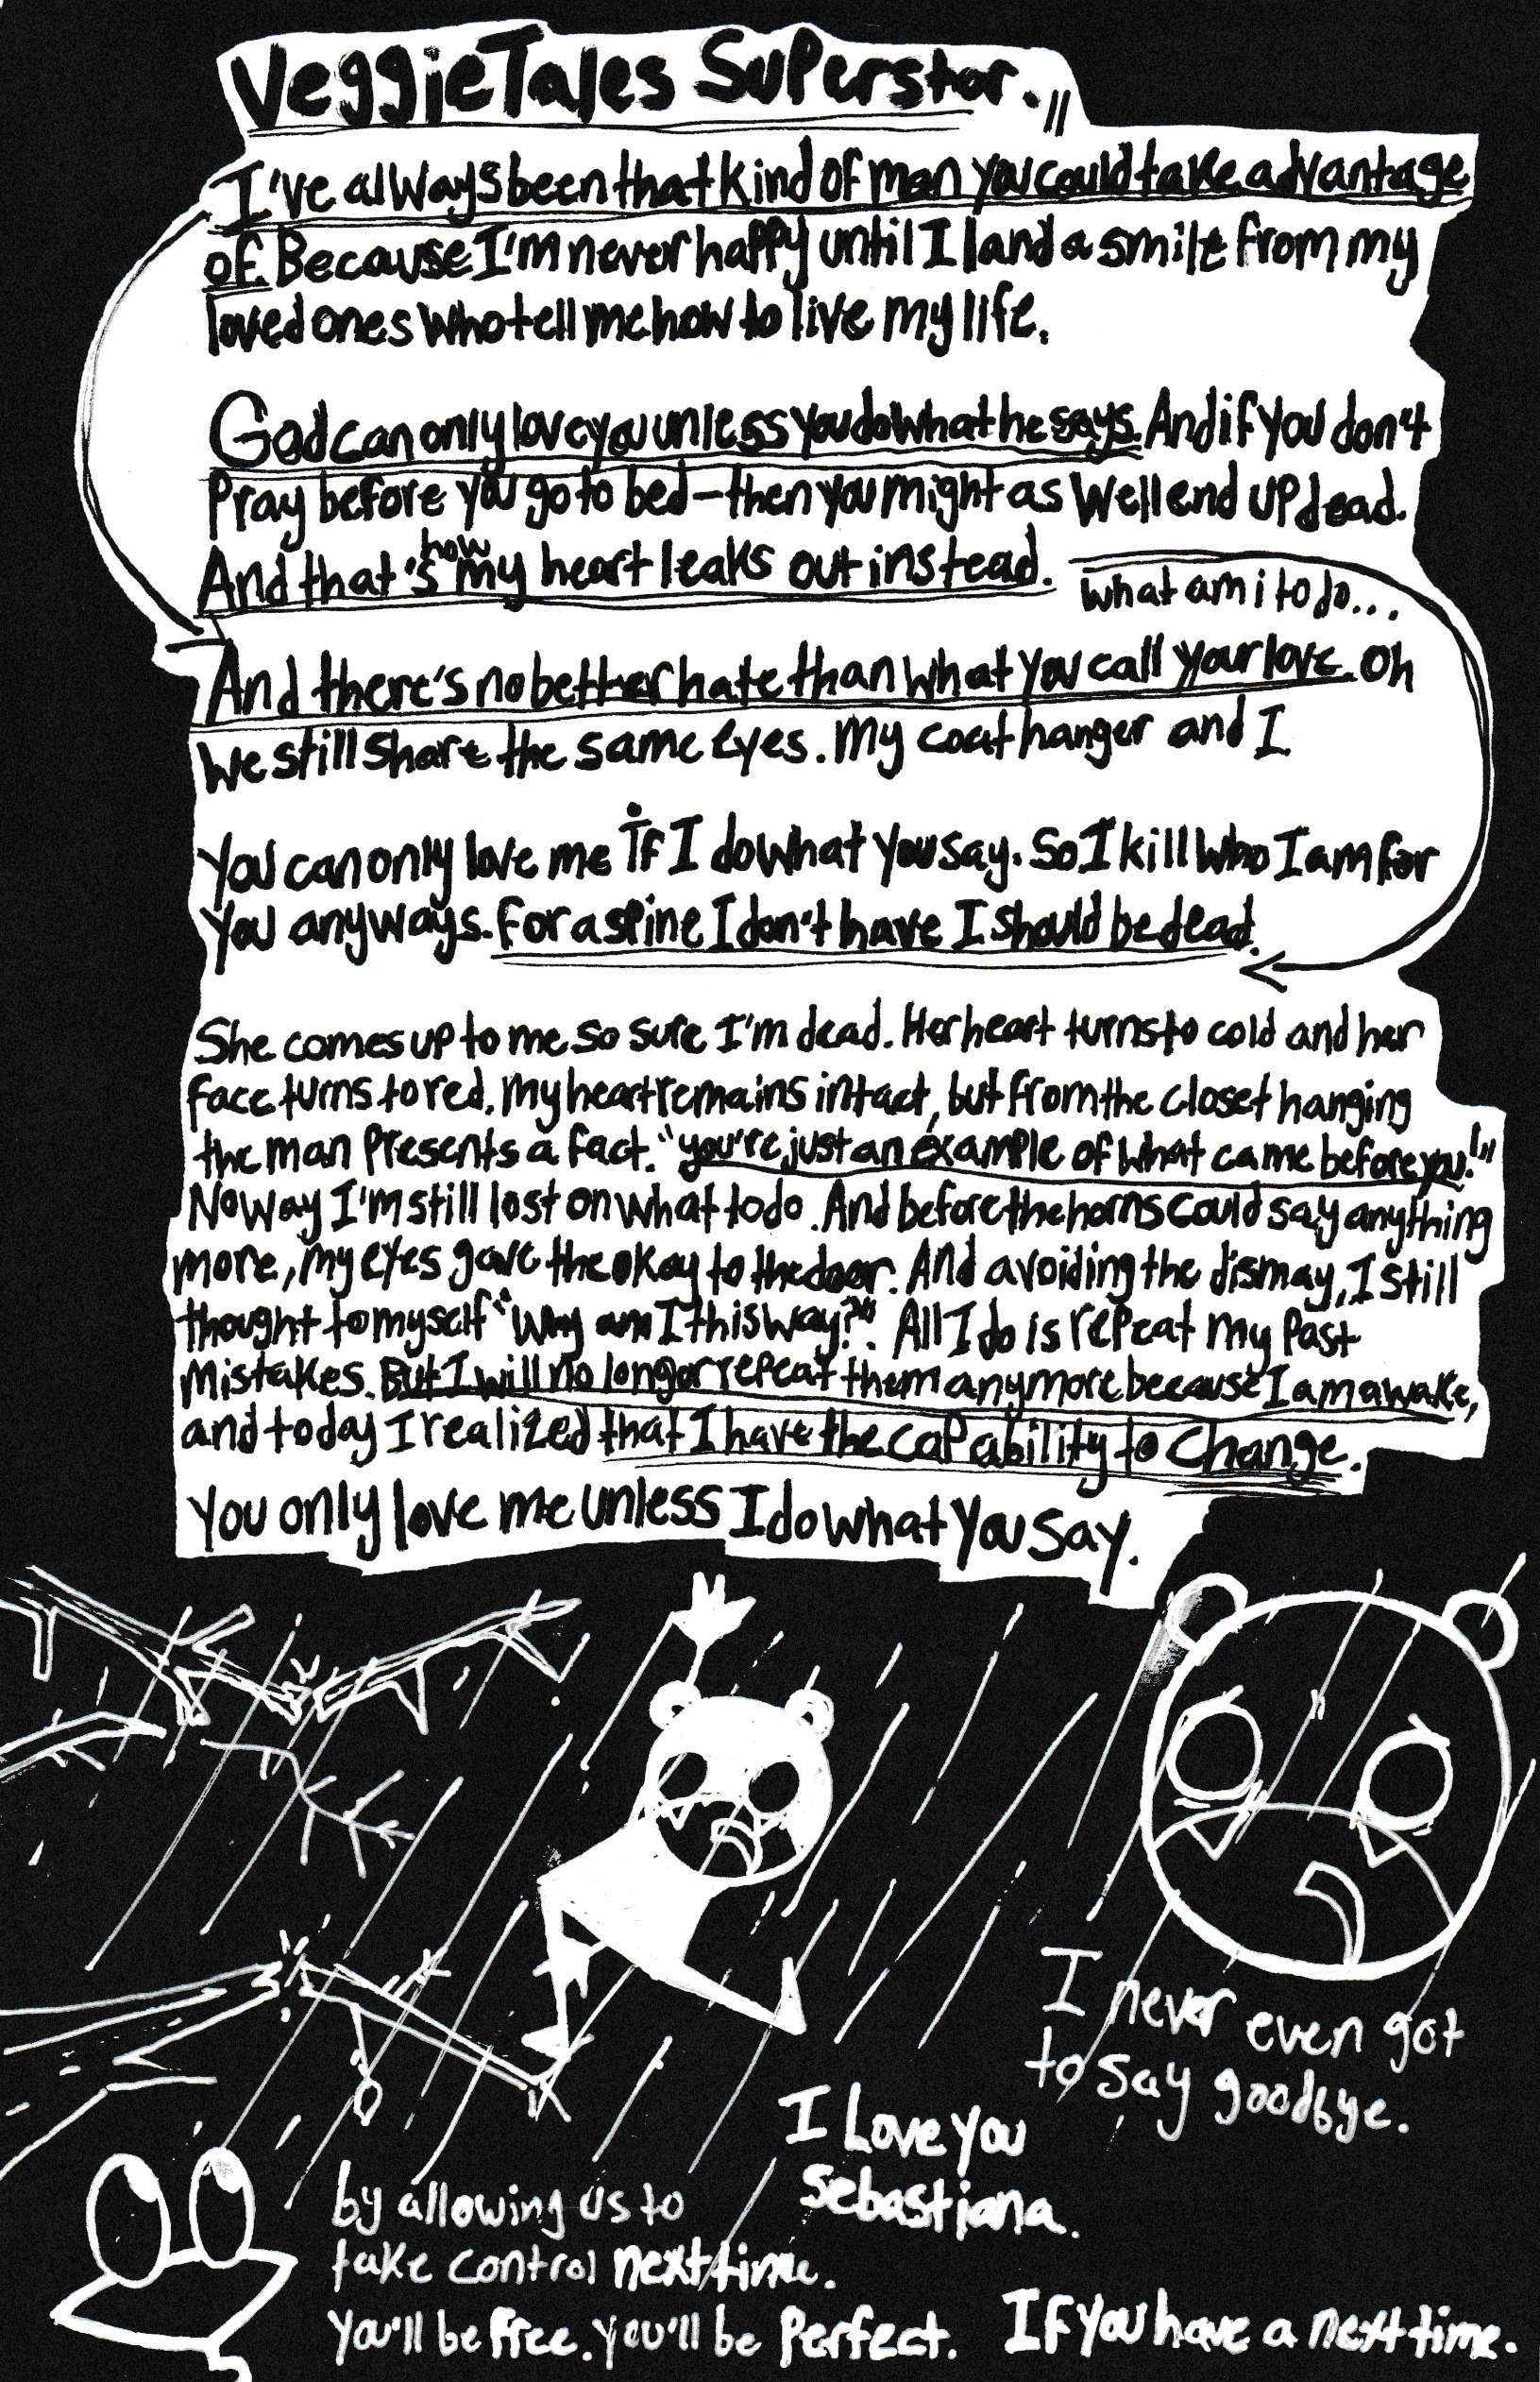 VeggieTales Superstar.
I've always been that kind of man you could take advantage
of. Because I'm never happy until I land a smile from my
loved ones who tell me how to live my life.
God can only love you unless you do what he says. And if you don't
Pray before you go to bed - then you might as well end up dead.
And that's how my heart leaks out instead.
what am i to do...
And there's no better hate than what you call your love. Oh
we still share the same eyes. My coat hanger and I
You can only love me If I do what you say. So I kill who I am for
you anyways. For a spine I don't have I should be dead.
She comes up to me so sure I'm dead. Her heart turns to cold and her
face turns to red. My heart remains intact, but from the closet hanging
the man presents a fact. "you're just an example of what came before you!"
No way I'm still lost on what to do. And before the horns could say anything
more, my eyes gave the okay to the door. And avoiding the dismay, I still
thought to myself "Why am I this way?". All I do is repeat my past
mistakes. But I will no longer repeat them anymore because I am awake,
and today I realized that I have the capability to change.
You only love me unless I do what you say.
I never even got
to say goodbye.
I Love you
Sebastiana.
by allowing us to
take control next time.
You'll be free. you'll be perfect.
If you have a next time.